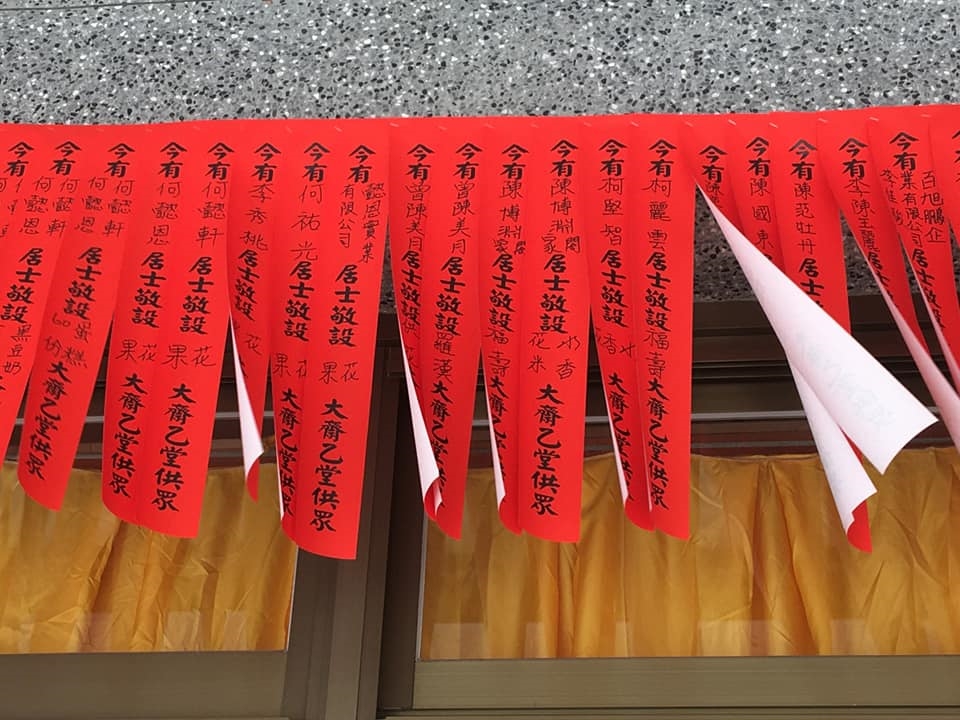 今有
百旭鵬企業有限公司
今有
今有李陳玉麗居
今有陳范牡丹居士敬設
今有陳國東
今有陳
今有柯麗雲居士敬設福壽大齋乙堂供眾
今有柯堅智居士敬設水香大齋乙堂供
今有陳博淵闔家居士敬設水香花米大齋乙堂供眾
今有陳博淵闔家居士敬設福壽大齋乙堂供
今有曾陳美月居士敬設羅漢大齋乙堂供眾
今有曾陳美月居士敬設供
今有懿恩實業有限公司居士敬設花果大齋乙堂供眾
今有何祐光居士敬設花果大齋乙堂供
今有李秀桃居士敬設花
今有何懿軒居士敬設花果大齋乙堂供眾
今有何懿恩居士敬設花果大齋乙堂供眾
今有何懿軒何懿恩居士敬設蛋糕60份大齋乙堂供眾
今有何懿軒何懿恩居士敬設黑豆奶
今有